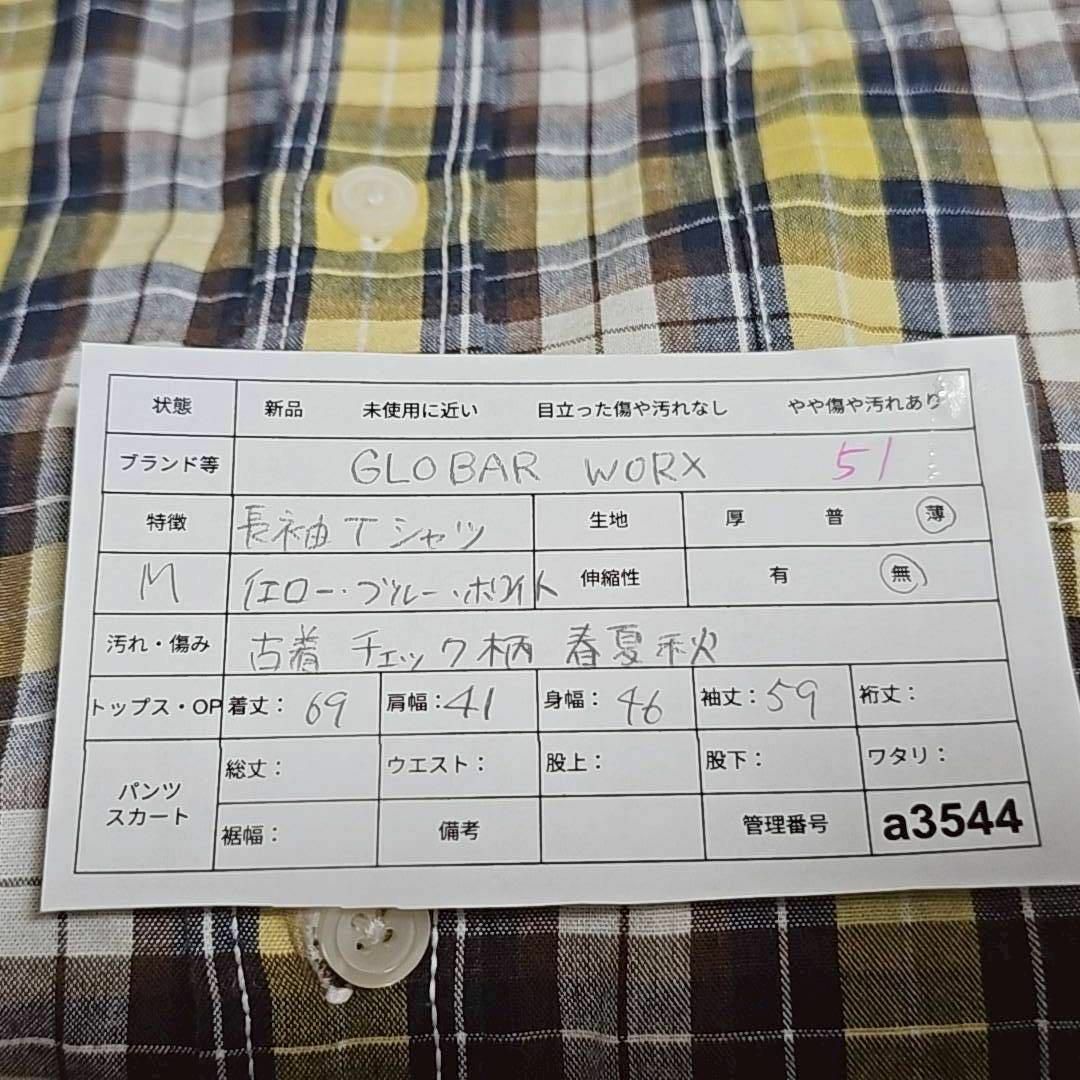 状態 新品 未使用に近い 目立った傷や汚れなし やや傷や汚れあり
ブランド等 GLOBAR WORX 51
特徴 長袖Tシャツ 生地 厚 普 薄
M イエロー・ブルー・ホワイト 伸縮性 有 無
汚れ・傷み 古着 チェック柄 春夏秋
トップス・OP 着丈：69 肩幅：41 身幅：46 袖丈：59 裄丈：
パンツ スカート 総丈： ウエスト： 股上： 股下： ワタリ：
裾幅： 備考 管理番号 a3544